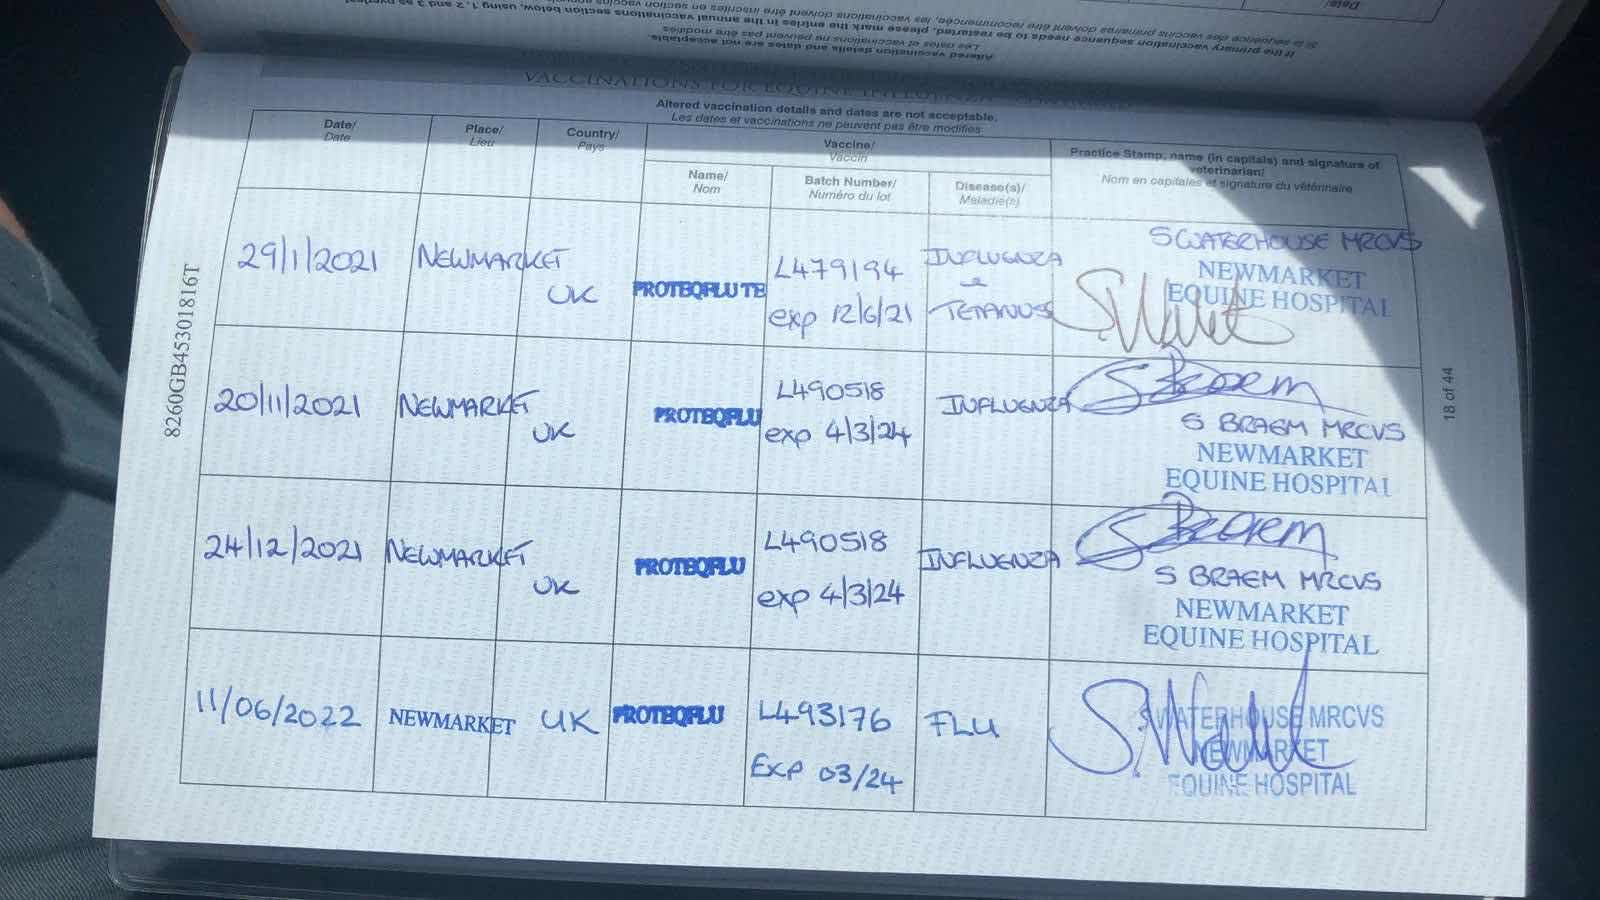 Date/
Si la séquence des vaccins primaires doivent être recommencée, les vaccinations doivent être inscrites en section vaccins
If the primary vaccination sequence needs to be restarted, please mark the entries in the annual vaccinations section below, using 1, 2 and 3 as
Les dates et vaccinations ne peuvent pas être modifiés
Altered vaccination details and dates are not acceptable.
VACCINATIONS FOR EQUINE INFLUENZA
Altered vaccination details and dates are not acceptable.
Les dates et vaccinations ne peuvent pas être modifies
Date/
Date
Place/
Lieu
Country/
Pays
Vaccine/
Vaccin
Name/
Nom
Batch Number/
Numéro du lot
Disease(s)/
Maladie(s)
Practice Stamp, name (in capitals) and signature of
veterinarian/
Nom en capitales et signature du vétérinaire
29/1/2021
NEWMARKET
UK
PROTEQFLU TE
L479194
exp 12/6/21
INFLUENZA
e
TETANUS
S WATERHOUSE MRCVS
NEWMARKET
EQUINE HOSPITAL
20/11/2021
NEWMARKET
UK
PROTEQFLU
L490518
exp 4/3/24
INFLUENZA
S Braem
S BRAEM MRCVS
NEWMARKET
EQUINE HOSPITAL
24/12/2021
NEWMARKET
UK
PROTEQFLU
L490518
exp 4/3/24
INFLUENZA
S Braem
S BRAEM MRCVS
NEWMARKET
EQUINE HOSPITAL
11/06/2022
NEWMARKET
UK
PROTEQFLU
L493176
Exp 03/24
FLU
S WATERHOUSE MRCVS
NEWMARKET
EQUINE HOSPITAL
8260GB45301816T
18 of 44